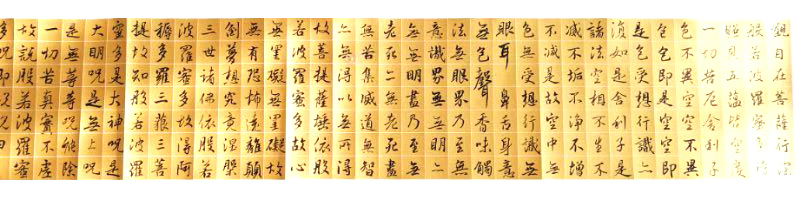 觀自在菩薩行深
般若波羅蜜多時
照見五蘊皆空度
一切苦厄舍利子
色不異空空不異
色色即是空空即
是色受想行識亦
復如是舍利子是
諸法空相不生不
滅不垢不淨不增
不減是故空中無
色無受想行識無
眼耳鼻舌身意
無色聲香味觸
法無眼界乃至無
意識界無無明亦
無無明盡乃至無
老死亦無老死盡
無苦集滅道無智
亦無得以無所得
故菩提薩埵依般
若波羅蜜多故心
無罣礙無罣礙故
無有恐怖遠離顛
倒夢想究竟涅槃
三世諸佛依般若
波羅蜜多故得阿
耨多羅三藐三菩
提故知般若波羅
蜜多是大神呪是
大明呪是無上呪
是無等等呪能除
一切苦真實不虛
故說般若波羅蜜
多呪即說呪曰